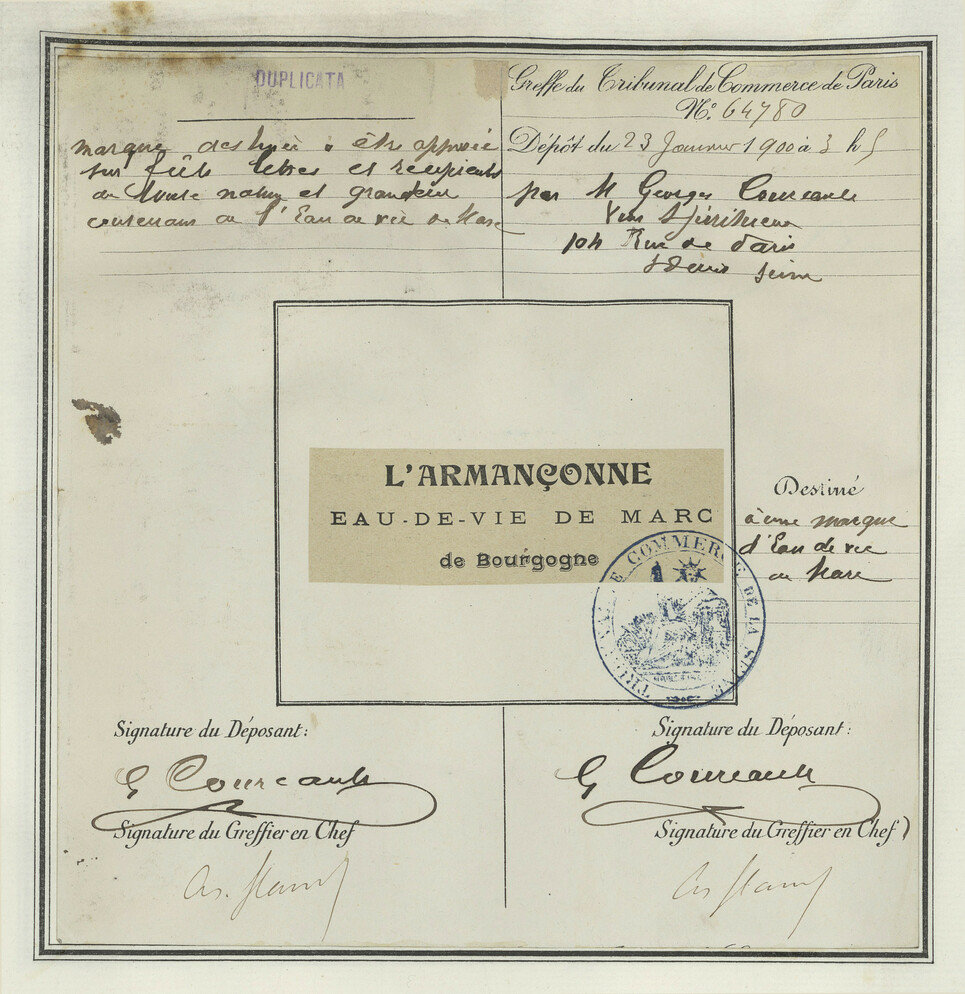 DUPLICATA
marque destinée à être apposée
sur fûts et récipients
de toute nature et grandeur
contenant de l'Eau de vie de Marc
Greffe du Tribunal de Commerce de Paris
N°. 64780
Dépôt du 23 Janvier 1900 à 3 h
par M Georges Courcault
Vins Spiritueux
104 Rue de Paris
St Denis Seine
L'ARMANÇONNE
EAU-DE-VIE DE MARC
de Bourgogne
Destiné
à une marque
d'Eau de vie
de Marc
TRIBUNAL DE COMMERCE DE LA SEINE
Signature du Déposant:
G Courcault
Signature du Greffier en Chef
Signature du Déposant:
G Courcault
Signature du Greffier en Chef